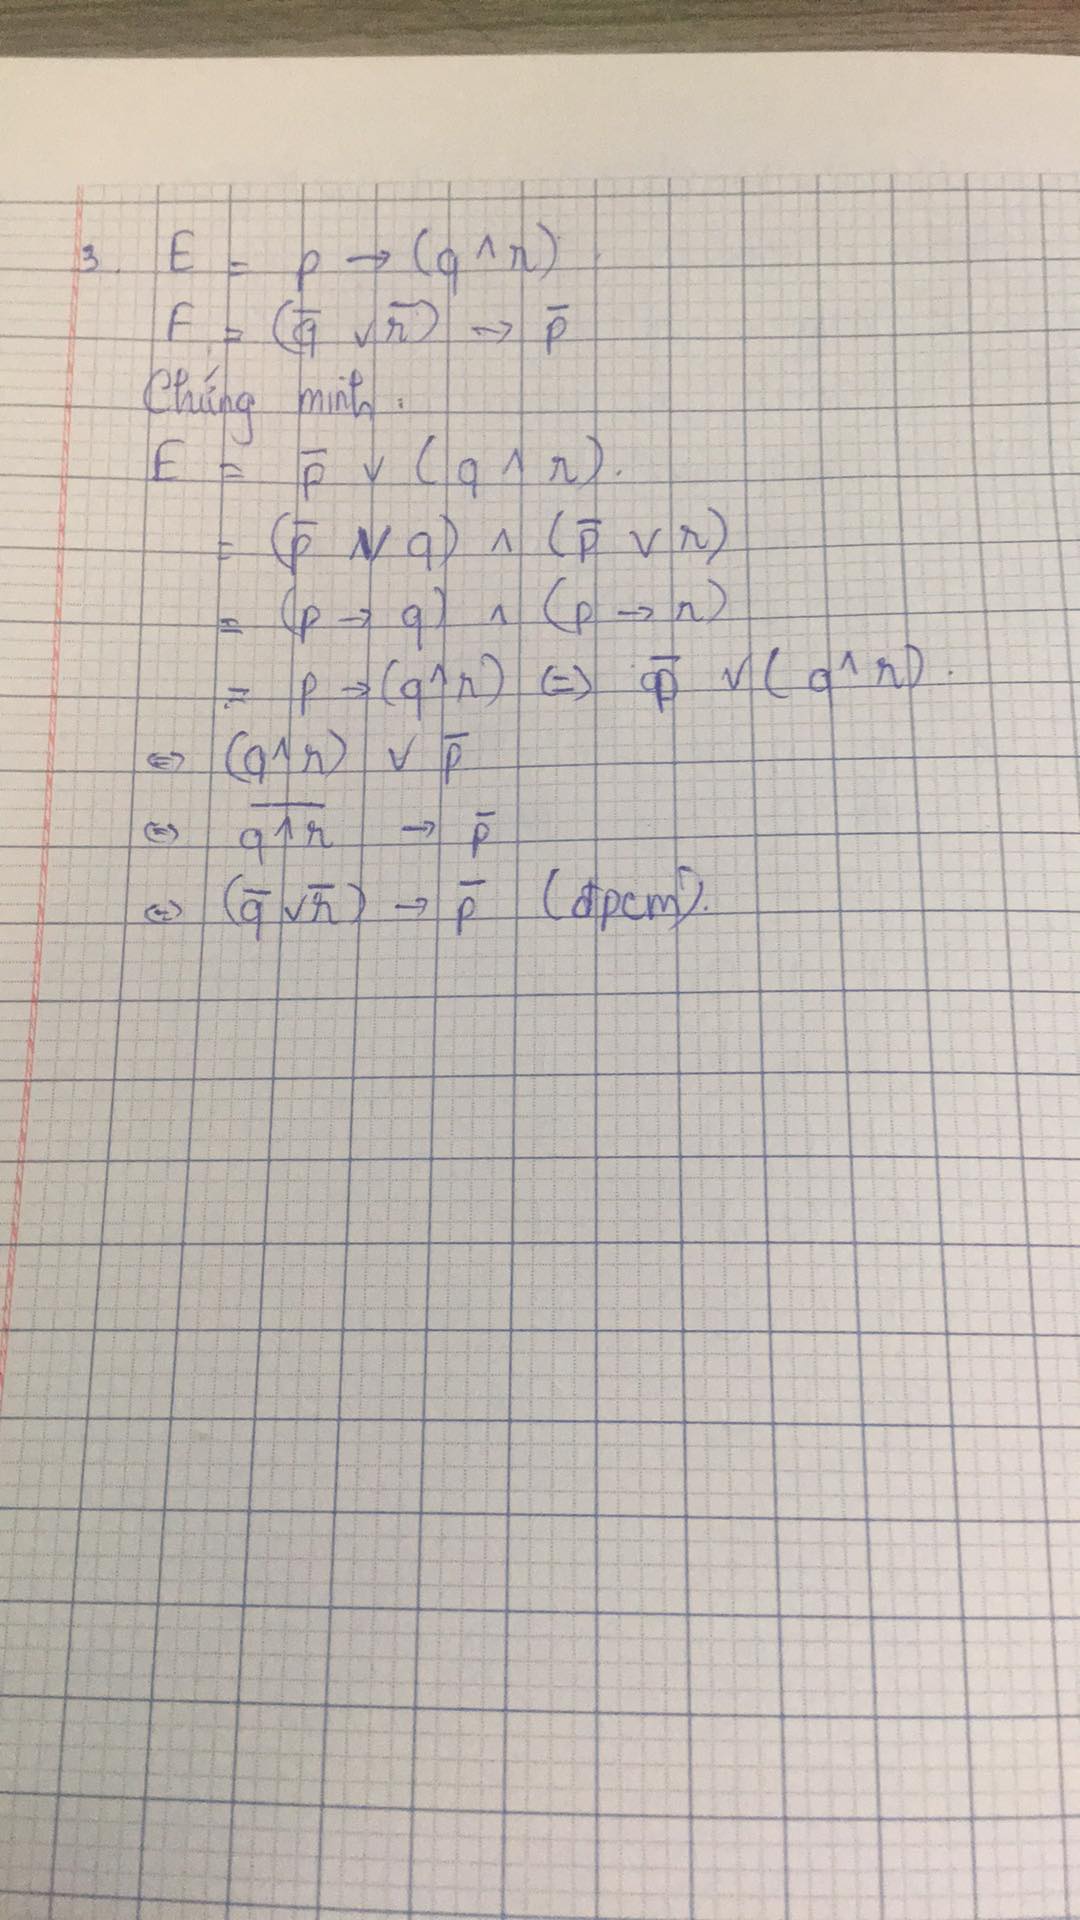 3. E = p → (q ∧ r)
F = (q̄ ∨ r̄) → p̄
Chứng minh:
E = p̄ ∨ (q ∧ r).
= (p̄ ∨ q) ∧ (p̄ ∨ r)
= (p → q) ∧ (p → r)
= p → (q ∧ r) ⇔ p̄ ∨ (q ∧ r).
⇔ (q ∧ r) ∨ p̄
⇔ q̅ ̅∧̅ ̅r̅ → p̄
⇔ (q̄ ∨ r̄) → p̄ (đpcm).